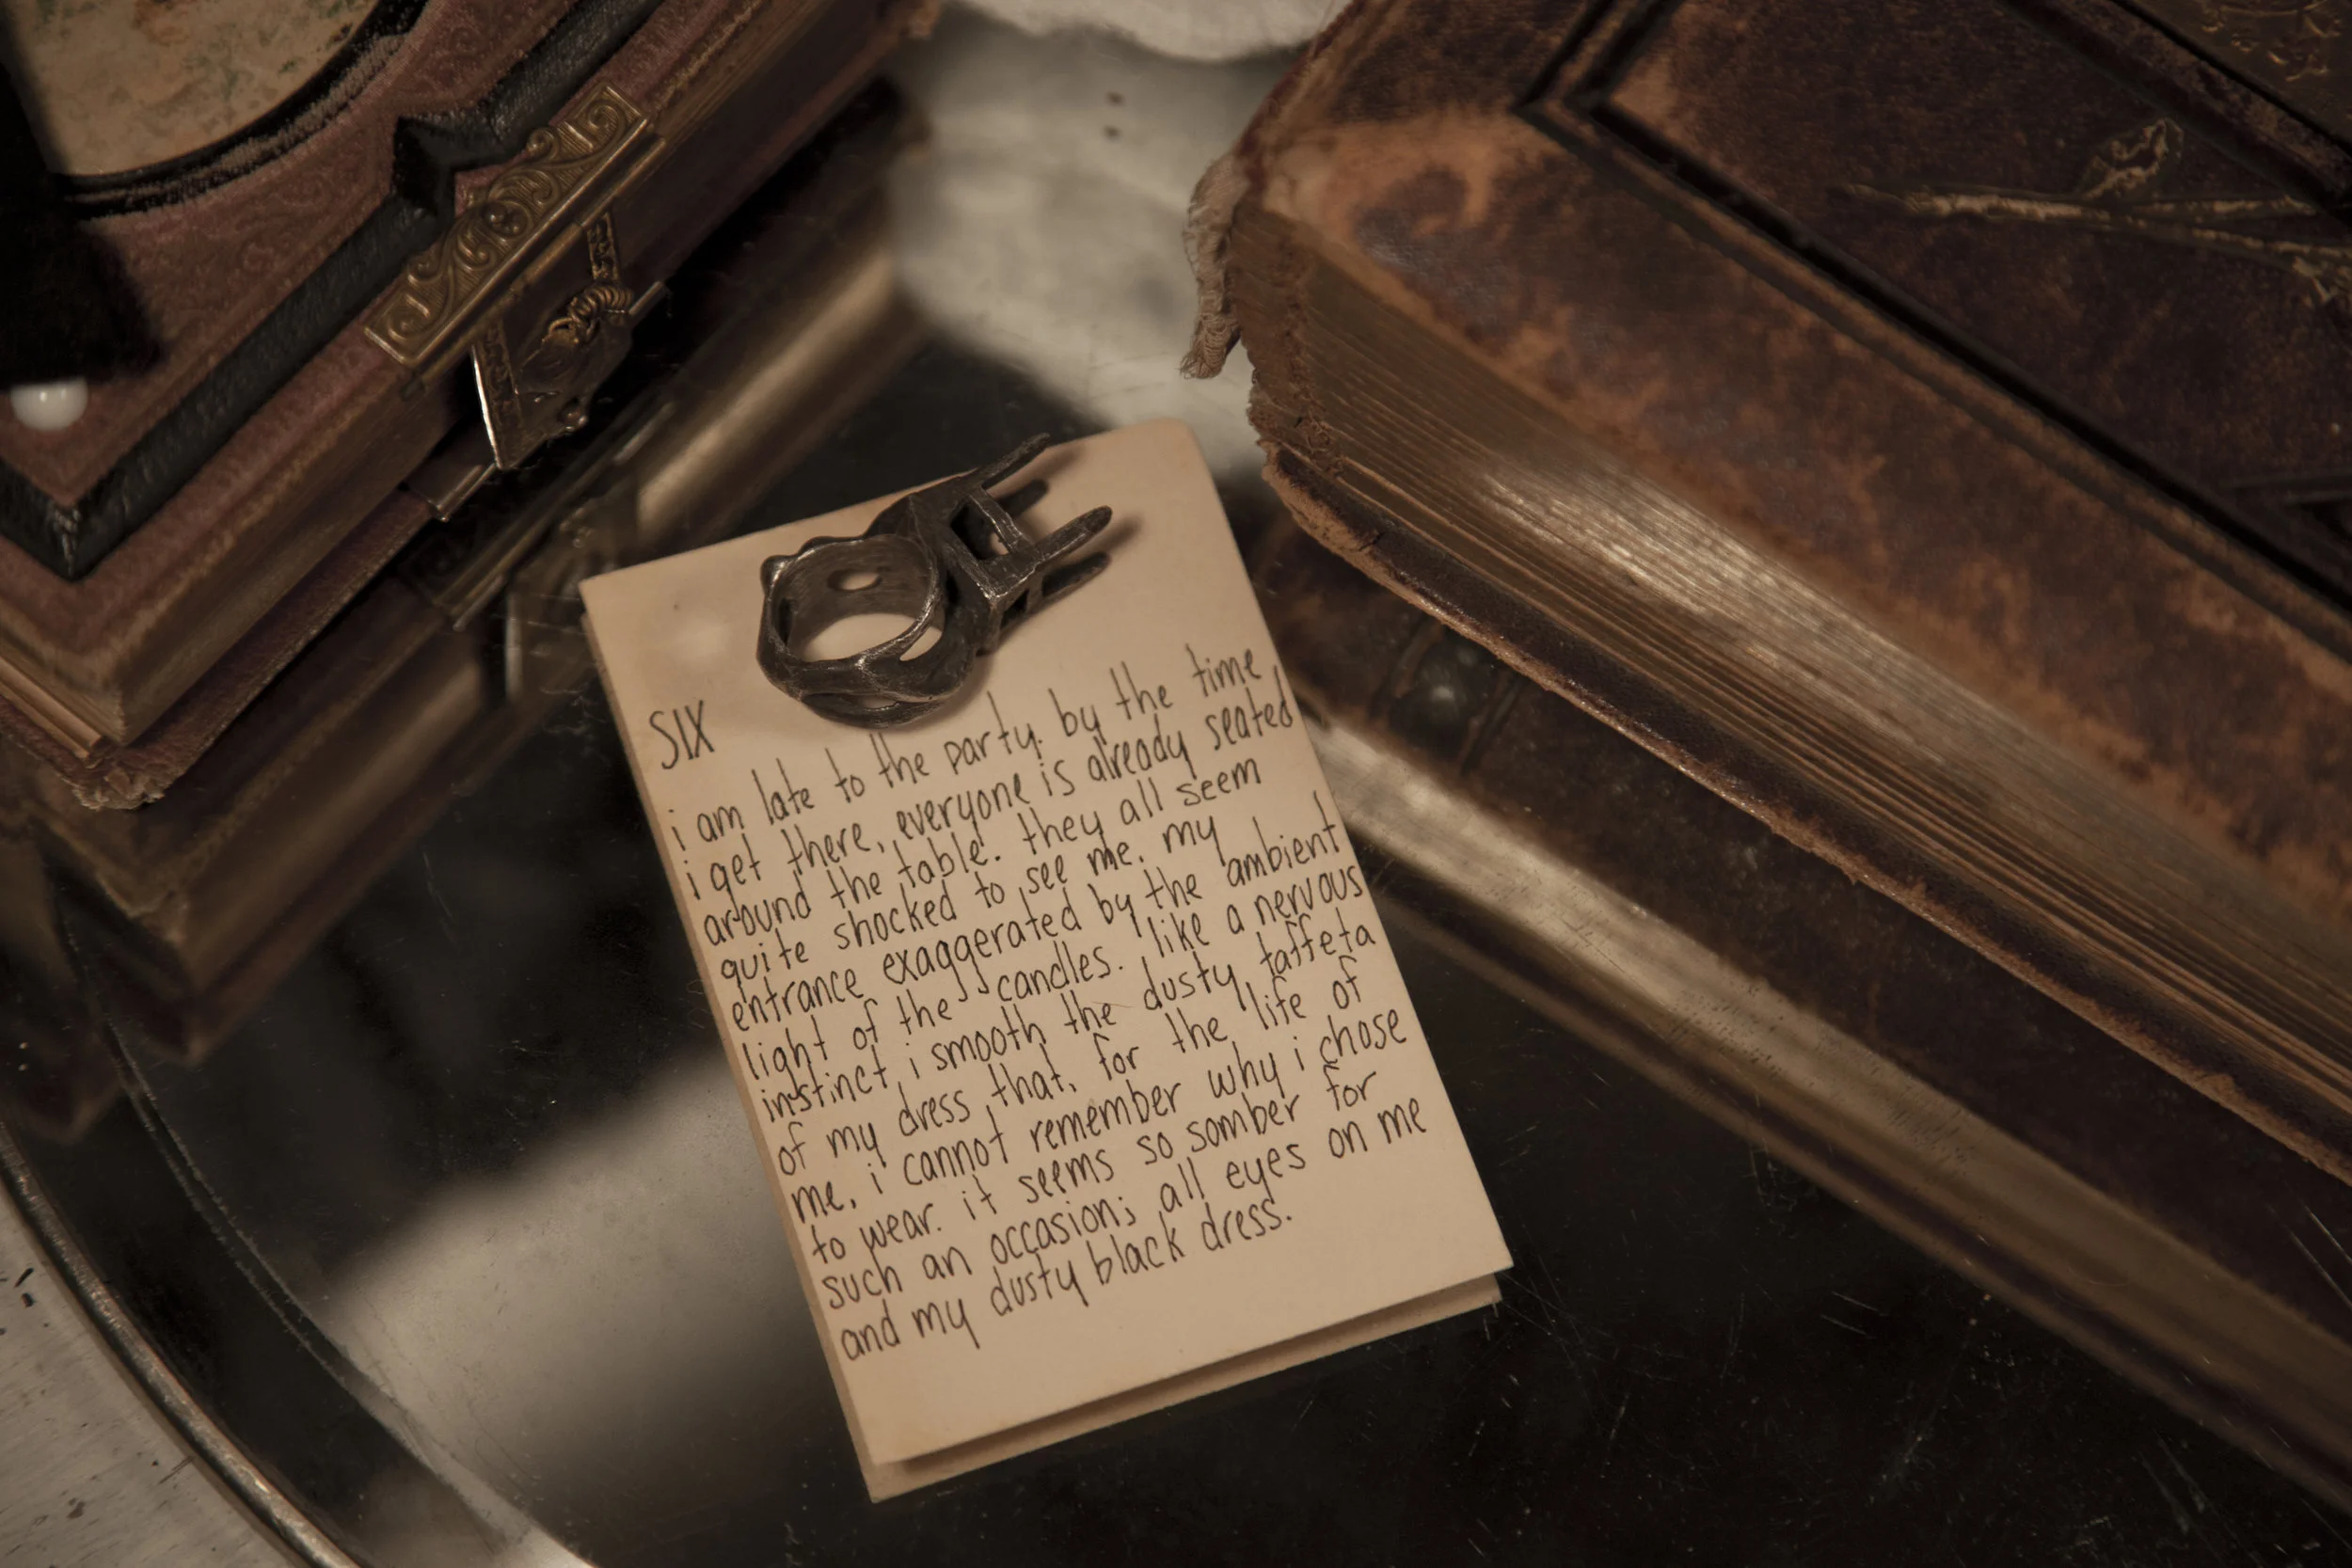 SIX
i am late to the party. by the time
i get there, everyone is already seated
around the table. they all seem
quite shocked to see me. my
entrance exaggerated by the ambient
light of the candles. like a nervous
instinct, i smooth the dusty taffeta
of my dress that, for the life of
me, i cannot remember why i chose
to wear. it seems so somber for
such an occasion; all eyes on me
and my dusty black dress.